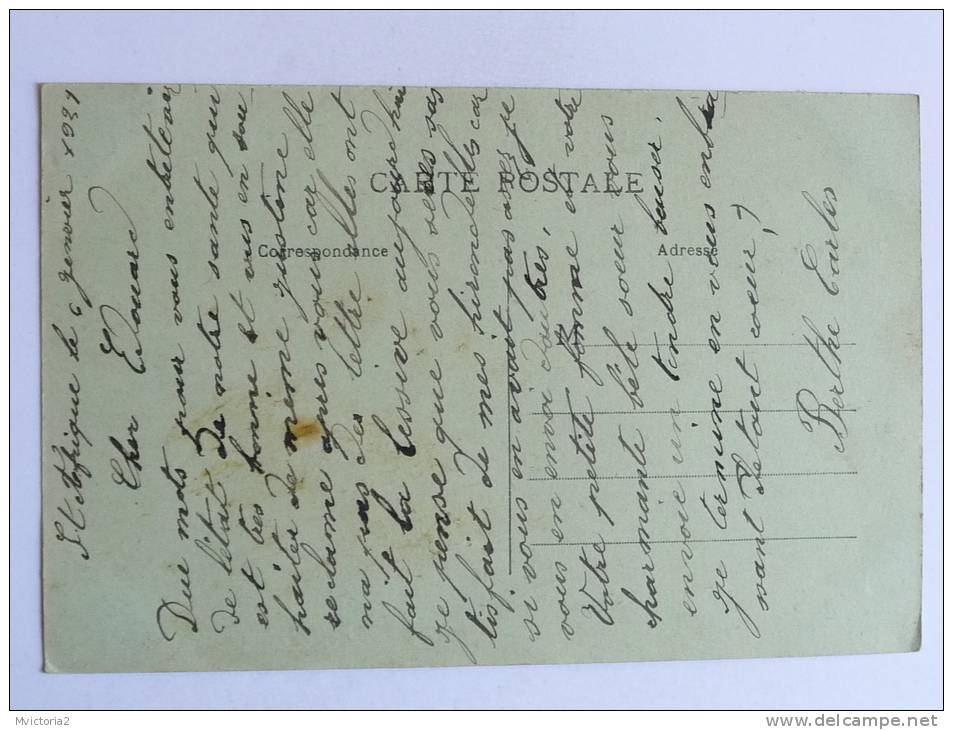 St Afrique le 6 genvier 1931
Cher Edouard
Due mots pour vous entretenir
de l'état de notre sante qui
est très bonne et vous en sou-
haiter de meme justine
reclame apres vous car elle
na pas des lettre elles ont
fait la lessive aujourd hui
je pense que vous seres sas
tisfait de mes hirondelles car
si vous en avait pas asez je
vous en envoi dautres,
Votre petite femme et votre
charmante bele soeur vous
envoie un tendre baiser.
je termine en vous enbra
ssant de tout coeur,
Berthe Carles
CARTE POSTALE
Correspondance
Adresse
Mvictoria2
www.delcampe.net